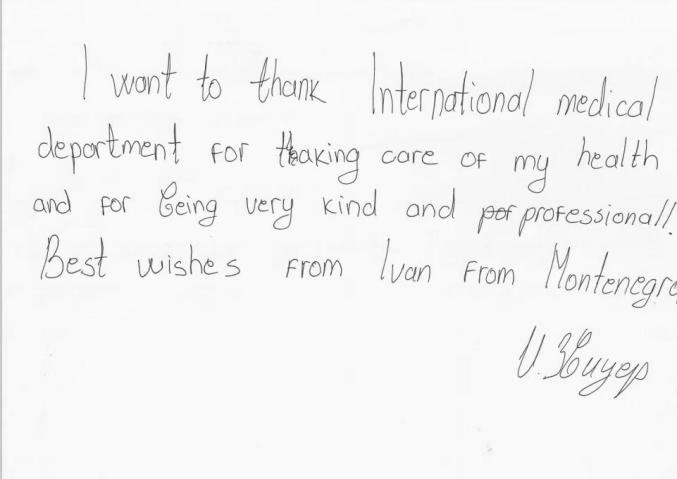 I want to thank International medical
department for thaking care of my health
and for being very kind and professional!
Best wishes from Ivan from Montenegro